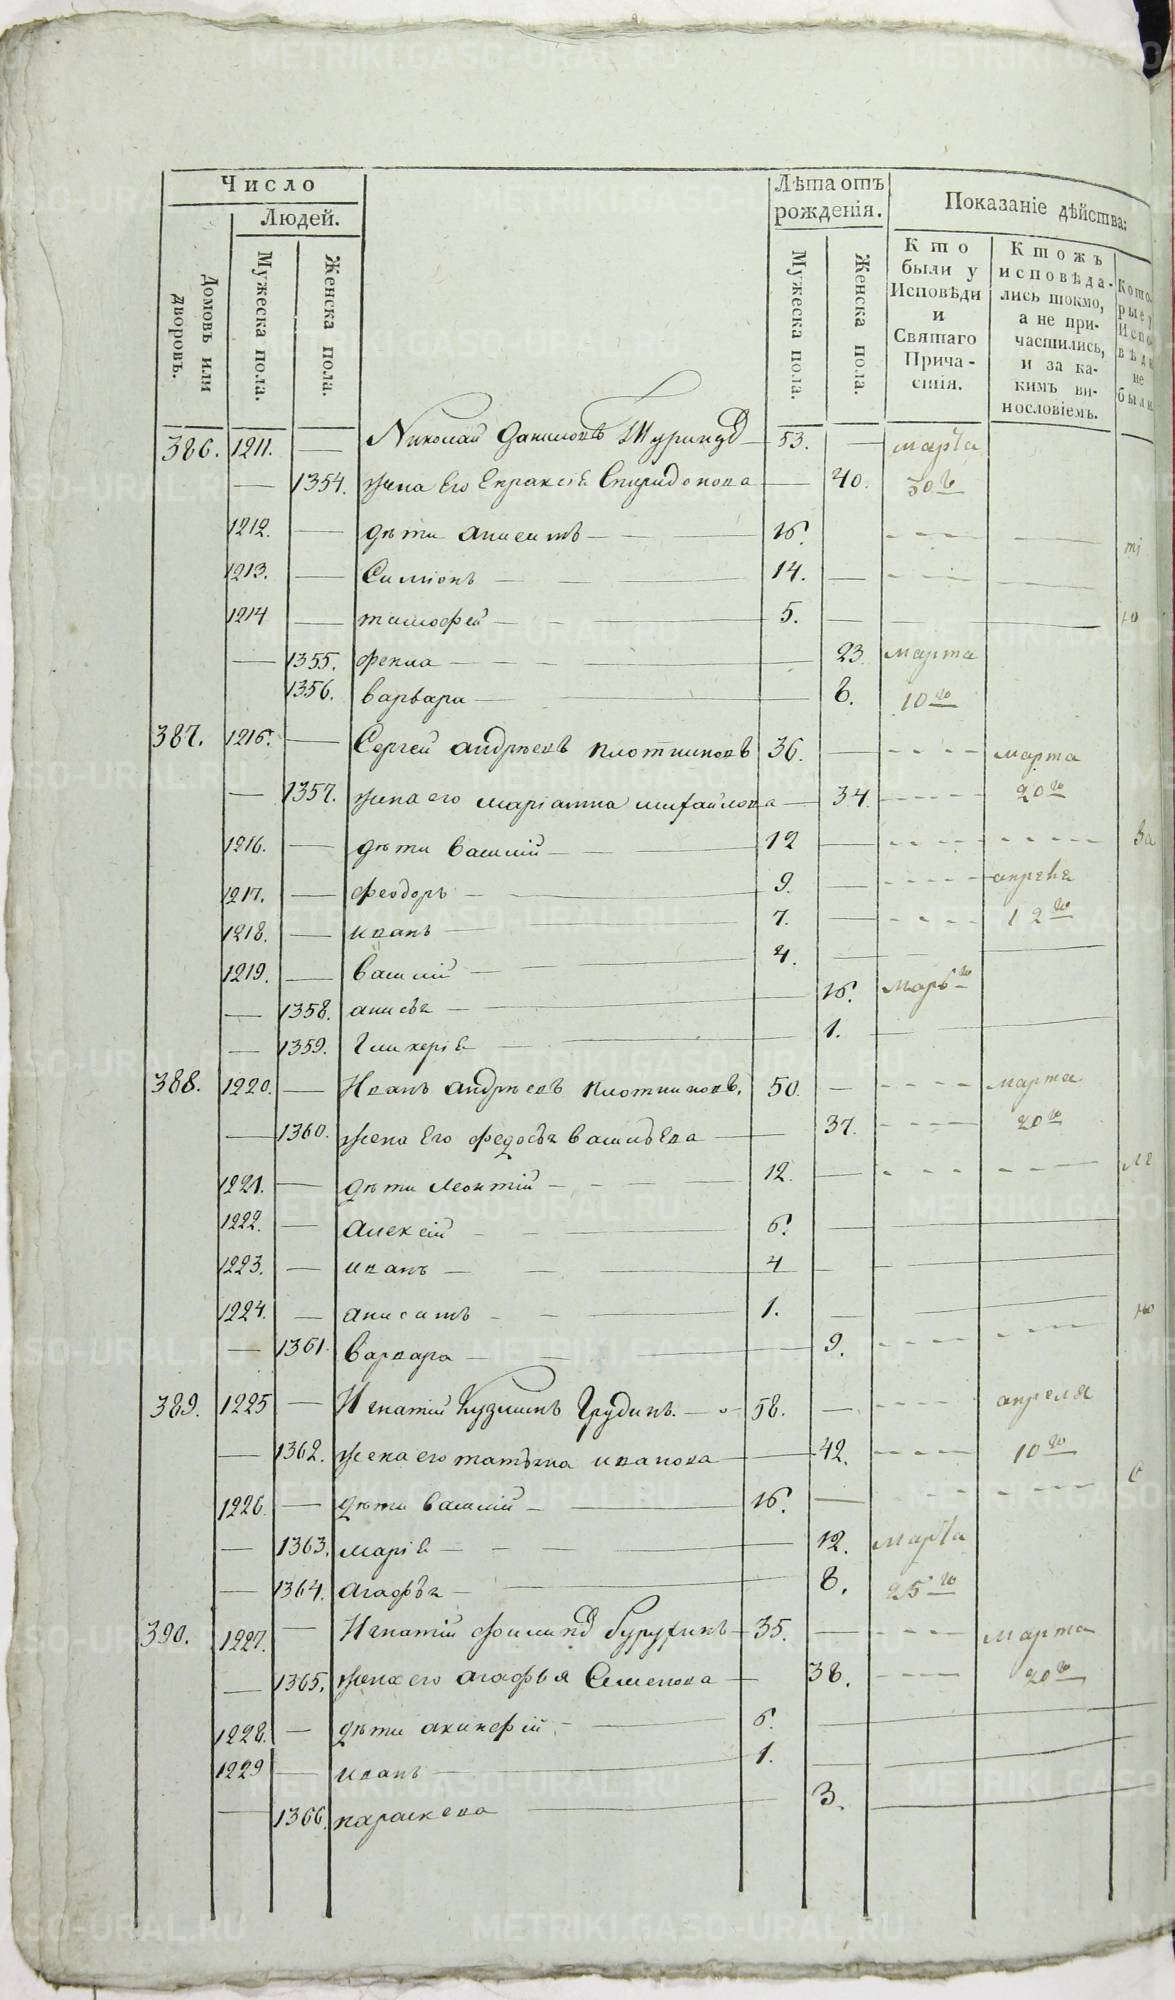 Число
Людей.
Домовъ или дворовъ.
Мужеска пола.
Женска пола.
Лѣта отъ рожденія.
Мужеска пола.
Женска пола.
Показаніе дѣйства:
Кто были у Исповѣди и Святаго Причастія.
Ктожъ исповѣдались токмо, а не причастились, и за какимъ винословіемъ.
Кото-
рые у
Испо-
вѣди
не
были
386. 1211. — Николай Даниловъ 53. — марта
— 1354. жена Его Евраксіѣ Спиридонова — 40. 30го
1212. — дѣти анисимъ — 16.
1213. — Симіонъ — 14. —
1214 — тимофей — 5. —
— 1355. фекла — 23. марта
1356. варвара — 8. 10го
387. 1216. — Сергей андрѣевъ плотниковъ 36. — марта
— 1357. жена его маріанна михайлова — 34. 20го
1216. — дѣти василій — 12 —
1217. — феодоръ — 9. — апреля
1218. — иванъ — 7. — 12го
1219. — василій — 4. —
— 1358. анисья — 16.
— 1359. Гликеріѣ — 1. —
388. 1220. — Иванъ андрѣевъ плотниковъ. 50. — марта
— 1360. жена Его федосья васильева — 37. 20го
1221. — дѣти леонтій — 12. —
1222. — алексій — 6. —
1223. — иванъ — 4 —
1224. — анисимъ — 1. —
— 1361. варвара — 9.
389. 1225 — Игнатій Кузминъ Грудинъ. — 58. — апреля
— 1362. жена его татьяна иванова — 42. 10го
1226. — дѣти василій — 16. —
— 1363. маріѣ — 12. марта
— 1364. агафья — 8. 25го
390. 1227. — Игнатій 35. — марта
— 1365. жена его агафья Семенова — 38. 20го
1228. — дѣти акинфій — 6. —
1229 — иванъ — 1.
— 1366. параскева — 3.
METRIKI.GASO-URAL.RU